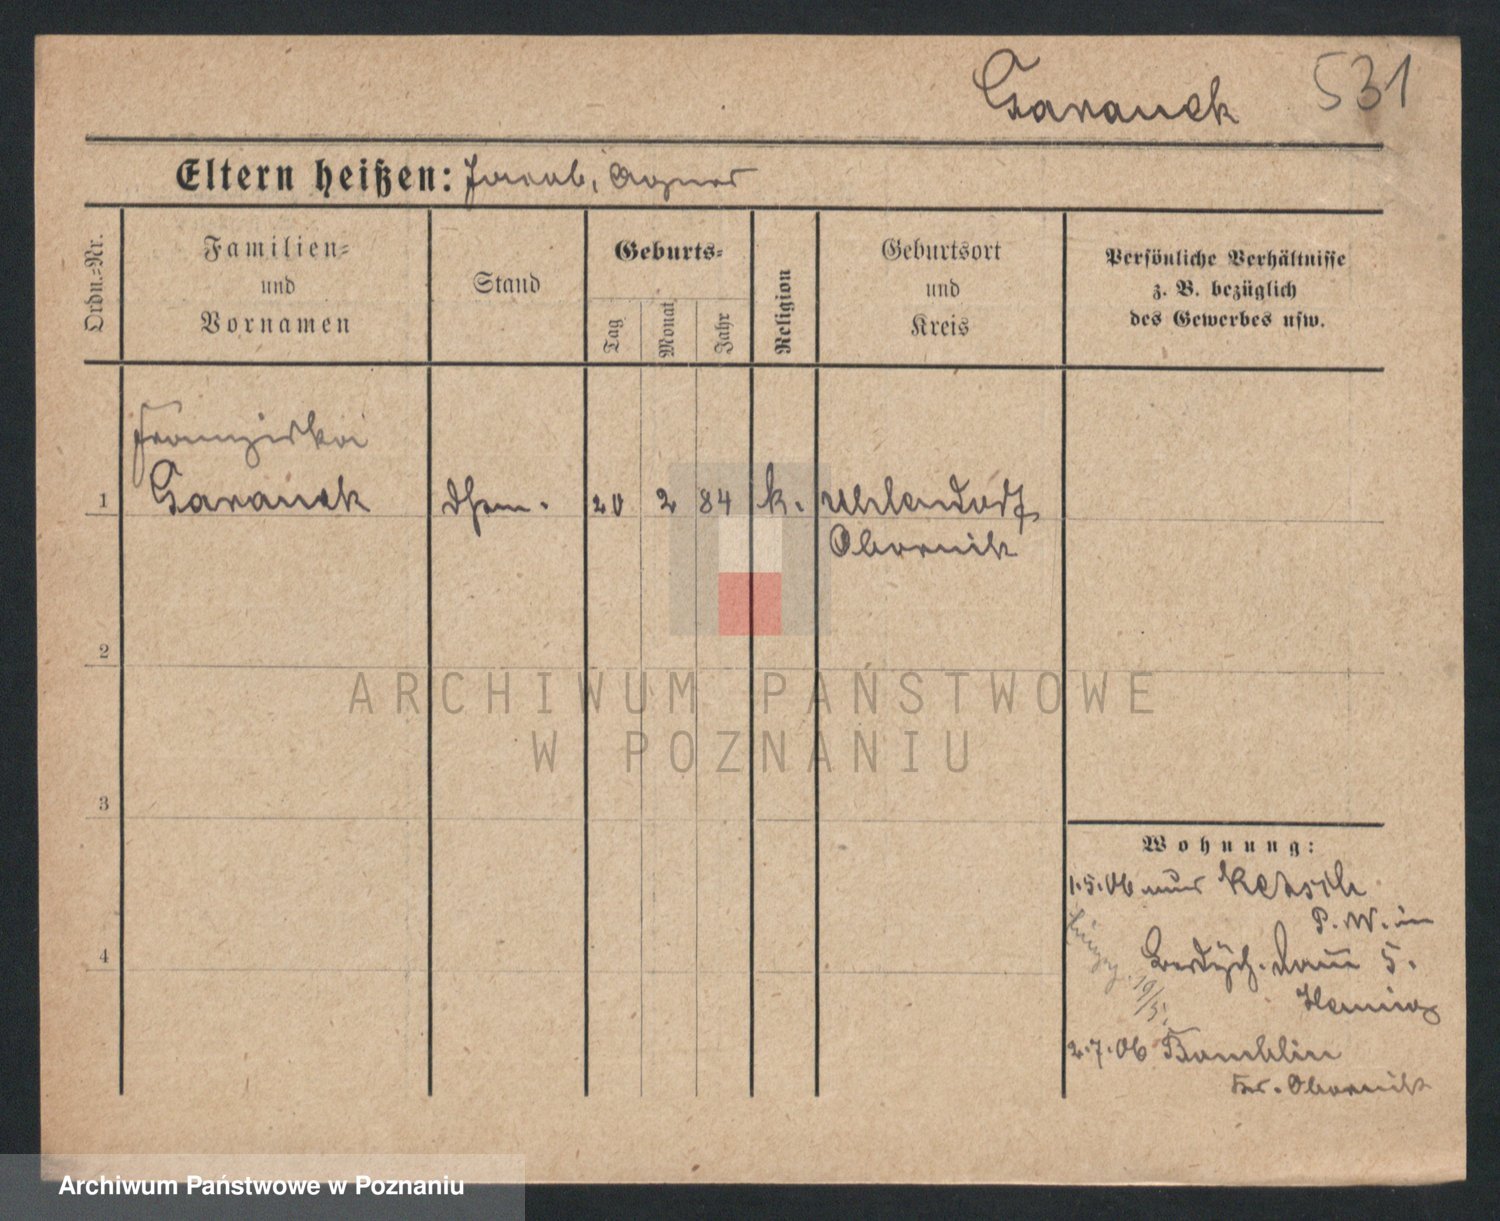 Garanek 531
Eltern heißen: Jacob, Agnes
Ordn.-Nr.
Familien-
und
Vornamen
Stand
Geburts-
Tag
Monat
Jahr
Religion
Geburtsort
und
Kreis
Persönliche Verhältnisse
z. B. bezüglich
des Gewerbes usw.
Franziska
1 Garanek 20 2 84 k. Uhlendorf
Obornik
2
3
4
ARCHIWUM PAŃSTWOWE
W POZNANIU
Wohnung:
1.5.06
P. W. in
5.
19/5.
2.7.06
Kr. Obornik
Archiwum Państwowe w Poznaniu